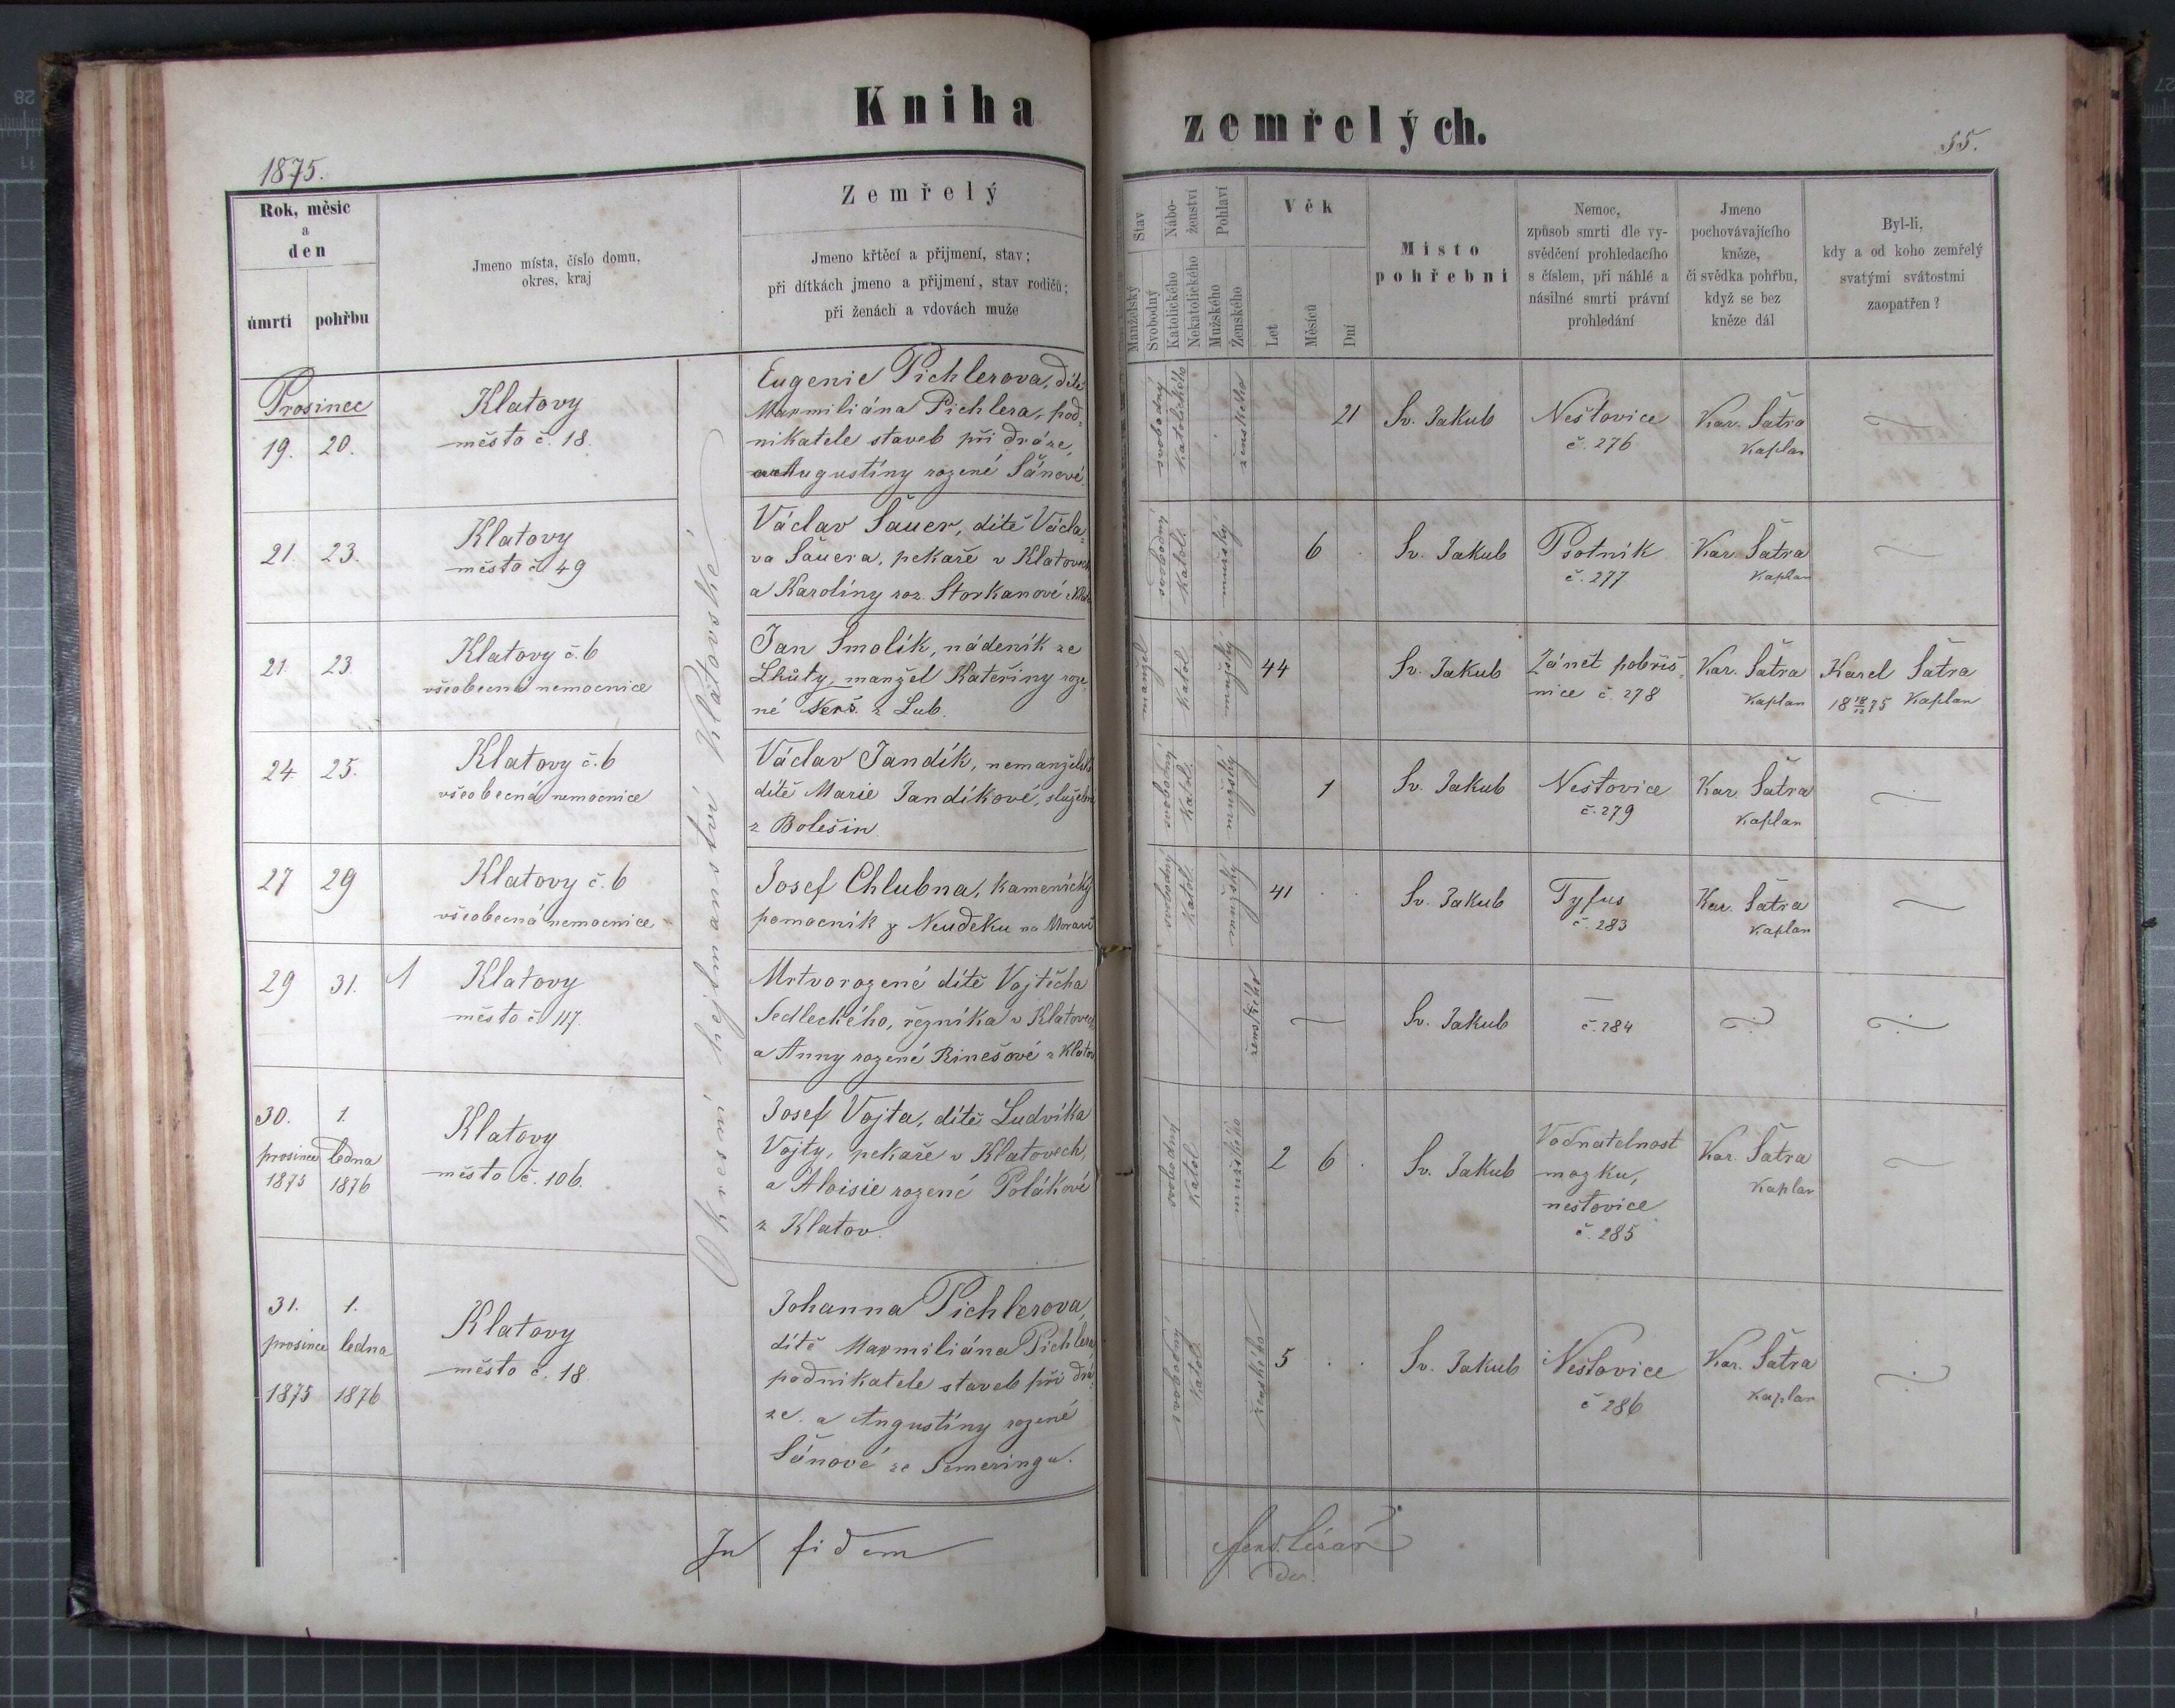 Kniha zemřelých.
1875.
55.
Rok, měsíc
a
den
úmrtí
pohřbu
Jmeno místa, číslo domu,
okres, kraj
Zemřelý
Jmeno křtěcí a přijmení, stav;
při dítkách jmeno a přijmení, stav rodičů;
při ženách a vdovách muže
Stav
Nábo-
ženství
Pohlaví
Manželský
Svobodný
Katolického
Nekatolického
Mužského
Ženského
Věk
Let
Měsíců
Dní
Místo
pohřební
Nemoc,
způsob smrti dle vy-
svědčení prohledacího
s číslem, při náhlé a
násilné smrti právní
prohledání
Jmeno
pochovávajícího
kněze,
či svědka pohřbu,
když se bez
kněze dál
Byl-li,
kdy a od koho zemřelý
svatými svátostmi
zaopatřen?
Okresní hejtmanství Klatovské
Prosinec
19. 20.
Klatovy
město č. 18.
Eugenie Pichlerova, dítě
Maxmiliána Pichlera, pod-
nikatele staveb při dráze,
a Augustiny rozené Šánové
svobodný
Katolického
ženského
21
Sv. Jakub
Neštovice
č. 276
Kar. Šatra
Kaplan
21. 23.
Klatovy
město č. 49
Václav Šauer, dítě Václa-
va Šauera, pekaře v Klatovech
a Karolíny roz. Storkanové
svobodný
Katol.
mužský
6
Sv. Jakub
Psotník
č. 277
Kar. Šatra
Kaplan
21. 23.
Klatovy č. 6
všeobecná nemocnice
Jan Smolík, nádeník ze
Lhůty, manžel Kateřiny roze-
né z Lub.
manžel
Katol
mužský
44
Sv. Jakub
Zánět pobřiš-
nice č 278
Kar. Šatra
Kaplan
Karel Šatra
18 18/12 75 Kaplan
24. 25.
Klatovy č. 6
všeobecná nemocnice
Václav Jandík, nemanželské
dítě Marie Jandíkové, služebné
z Bolešin
svobodný
Katol.
mužský
1
Sv. Jakub
Neštovice
č. 279
Kar. Šatra
Kaplan
27 29
Klatovy č. 6
všeobecná nemocnice
Josef Chlubna, kamenický
pomocník z Neudeku na Moravě
svobodný
Katol.
mužský
41
Sv. Jakub
Tyfus
č. 283
Kar. Šatra
Kaplan
29 31. 1
Klatovy
město č. 117.
Mrtvorozené dítě Vojtěcha
Sedleckého, řezníka v Klatovech,
a Anny rozené Rinešové z Klatov
ženského
Sv. Jakub
č. 284
30. 1.
prosince ledna
1875 1876
Klatovy
město č. 106.
Josef Vojta, dítě Ludvíka
Vojty, pekaře v Klatovech,
a Aloisie rozené Polákové
z Klatov.
svobodný
Katol
mužského
2 6
Sv. Jakub
Vodnatelnost
mozku,
neštovice
č. 285
Kar. Šatra
Kaplan
31. 1.
prosince ledna
1875 1876
Klatovy
město č. 18
Johanna Pichlerova,
dítě Maxmiliána Pichlera,
podnikatele staveb při drá-
ze a Augustiny rozené
Šónové ze Semeringu.
svobodný
Katol.
ženského
5
Sv. Jakub
Neštovice
č 286
Kar. Šatra
Kaplan
In fidem